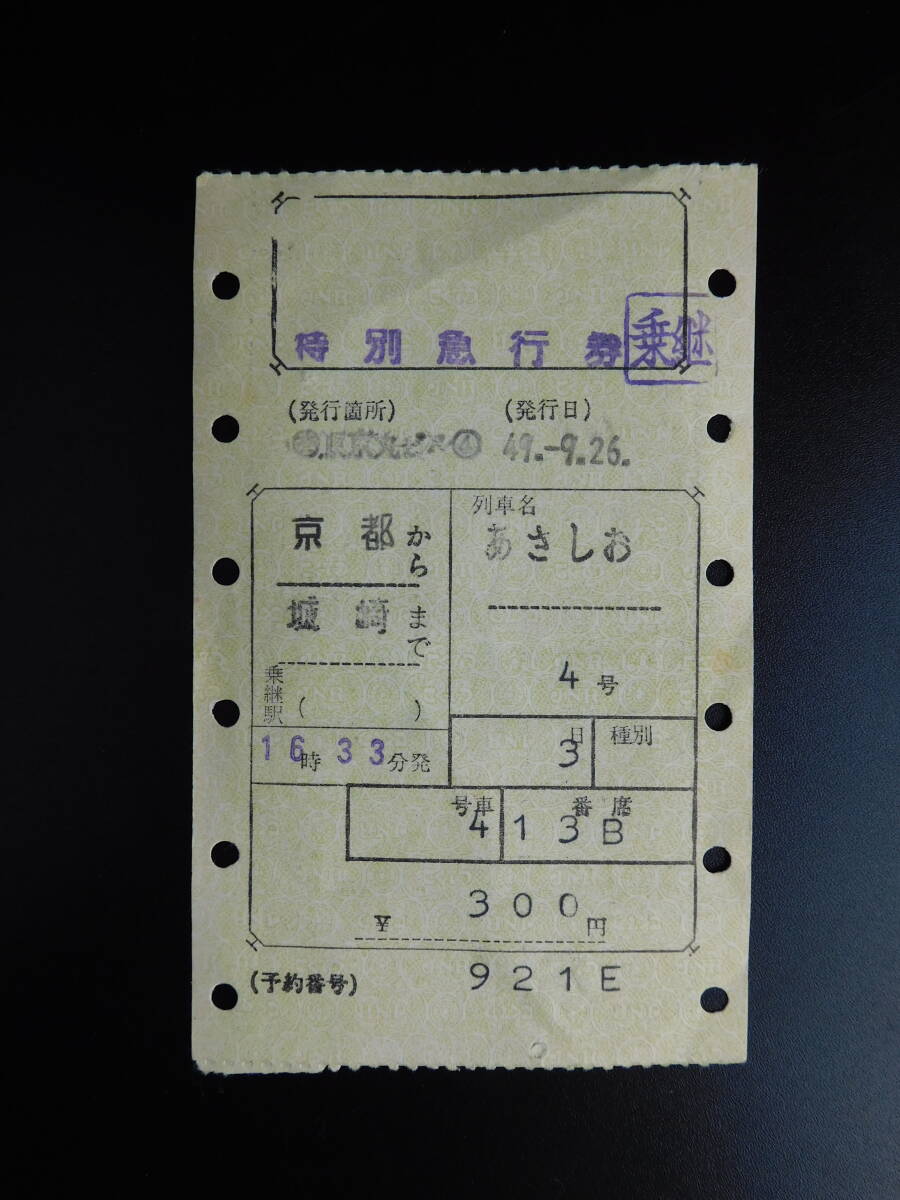 特別急行券 乗継
(発行箇所) (発行日)
49.-9.26.
京都から
城崎まで
乗継駅( )
16時33分発
列車名
あさしお
4号
3日 種別
号車 4
番席 13B
¥ 300円
(予約番号) 921E